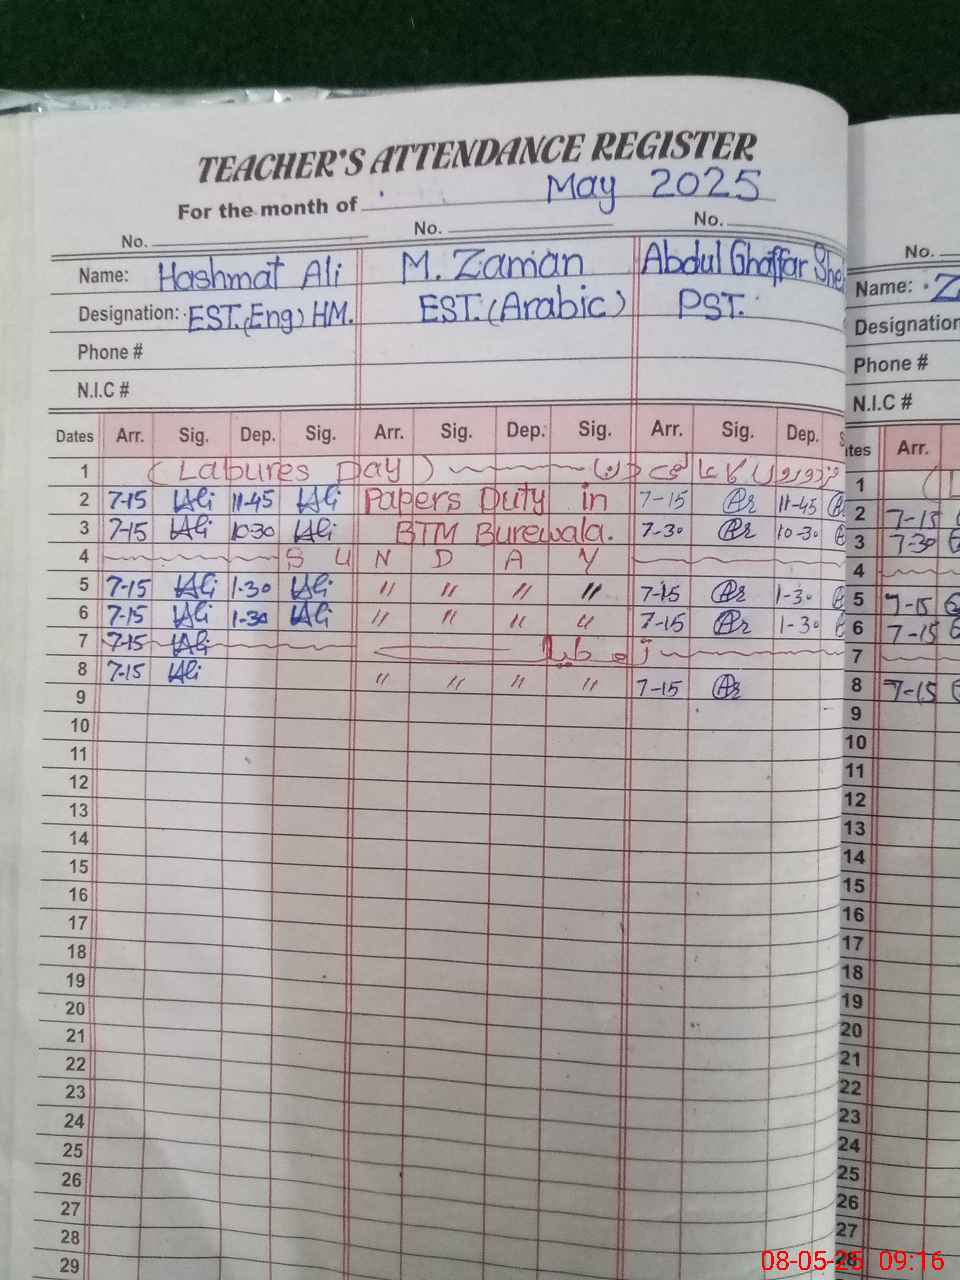 TEACHER'S ATTENDANCE REGISTER
For the month of May 2025
No. No. No.
Name: Hashmat Ali M. Zaman Abdul Ghaffar She
Designation: EST.(Eng) HM. EST.(Arabic) PST.
Phone #
N.I.C #
Dates Arr. Sig. Dep. Sig. Arr. Sig. Dep. Sig. Arr. Sig. Dep. S
1 (Labures Day)
2 7-15 HAli 11-45 HAli Papers Duty in 7-15 11-45
3 7-15 HAli 10-30 HAli BTM Burewala. 7-30 10-30
4 S U N D A Y
5 7-15 HAli 1-30 HAli " " " " 7-15 1-30
6 7-15 HAli 1-30 HAli " " " " 7-15 1-30
7 7-15 HAli
8 7-15 HAli " " " " 7-15
9
10
11
12
13
14
15
16
17
18
19
20
21
22
23
24
25
26
27
28
29
No.
Name: Z
Designation
Phone #
N.I.C #
ates Arr.
1
2 7-15
3 7-30
4
5 7-15
6 7-15
7
8 7-15
9
10
11
12
13
14
15
16
17
18
19
20
21
22
23
24
25
26
27
28
08-05-25 09:16